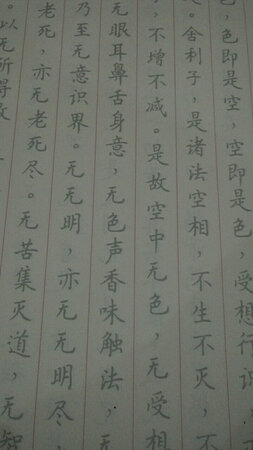 ，色即是空，空即是色，受想行识，
。舍利子，是诸法空相，不生不灭，不
，不增不减。是故空中无色，无受
无眼耳鼻舌身意，无色声香味触法，无
乃至无意识界。无无明，亦无无明尽，
老死，亦无老死尽。无苦集灭道，无智
。以无所得故